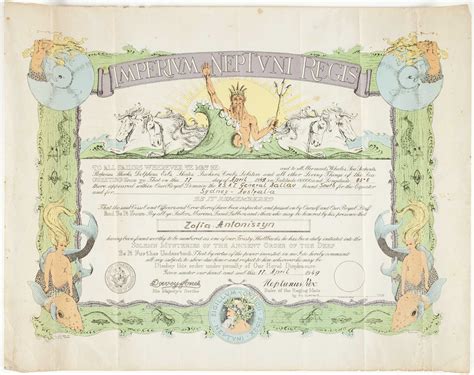 IMPERIVM NEPTVNI REGIS
TO ALL SAILORS WHEREVER YE MAY BE: and to all Mermaids, Whales, Sea Serpents,
Porpoises, Sharks, Dolphins, Eels, Skates, Suckers, Crabs, Lobsters and all other Living Things of the Sea
GREETING: Know ye, That on this 17 day of April 1949 in Latitude 00000 and Longitude
there appeared within Our Royal Domain the USAT General Ballou bound South for the Equator
and for Sydney - Australia
BE IT REMEMBERED
That the said Vessel and Officers and Crew thereof have been inspected and passed on by Ourself and Our Royal Staff
And Be It Known: By all ye Sailors, Marines, Land Lubbers and others who may be honored by his presence that
Zofia Antoniszyn
having been found worthy to be numbered as one of our Trusty Shellbacks he has been duly initiated into the
SOLEMN MYSTERIES OF THE ANCIENT ORDER OF THE DEEP
Be It Further Understood: That by virtue of the power invested in me I do hereby command
all my subjects to show due honor and respect to him wherever he may be
Disobey this order under penalty of Our Royal Displeasure.
Given under our hand and seal this 17 April 1949
Davey Jones
His Majesty's Scribe
Neptunus Rex
Ruler of the Raging Main